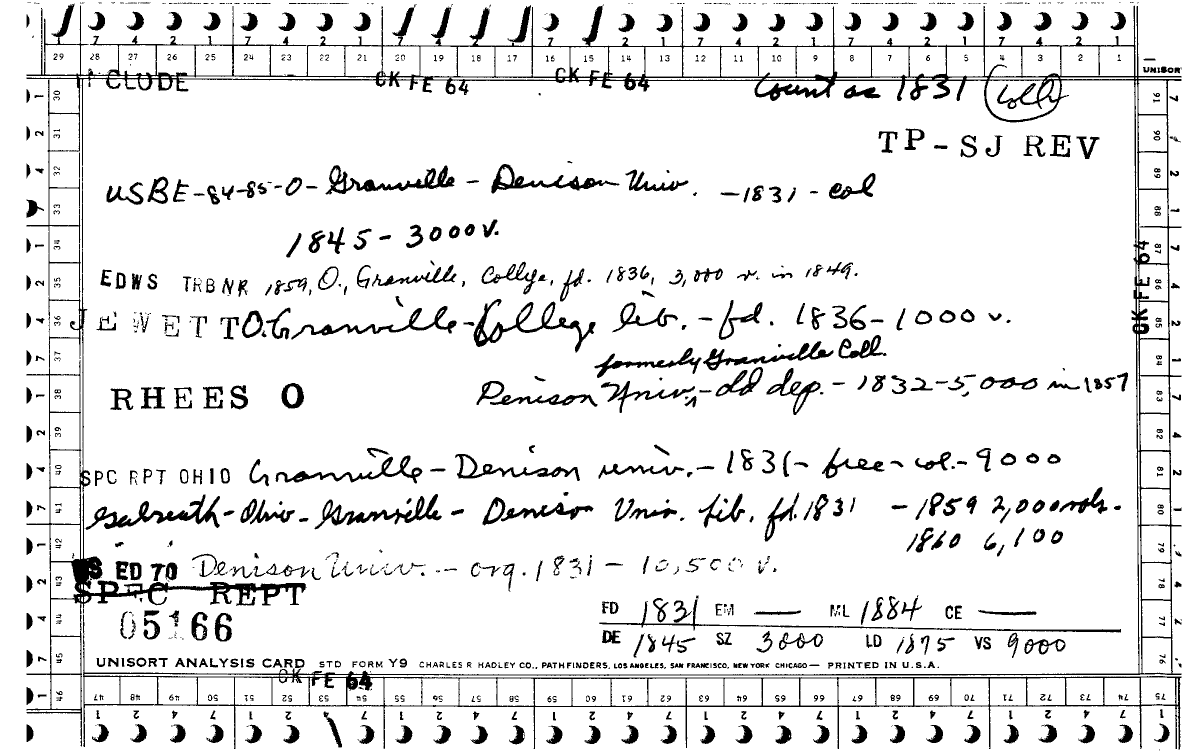 7 4 2 1 7 4 2 1 7 4 2 1 7 4 2 1 7 4 2 1 8 7 6 5 4 3 2 1
29 28 27 26 25 24 23 22 21 20 19 18 17 16 15 14 13 12 11 10 9 8 7 6 5 4 3 2 1
UNISORT
CLUDE CK FE 64 CK FE 64 Count as 1831 Coll
TP-SJ REV
USBE-84-85-O-Granville-Denison Univ. -1831-col
1845-3000v.
EDWS TRBNR 1859, O., Granville, College, fd. 1836, 3,000 v. in 1849.
JEWETT O. Granville-College lib. - fd. 1836-1000 v.
formerly Granville Coll.
RHEES O Denison Univ. ^ - old dep. - 1832-5,000 in 1857
SPC RPT OHIO Granville-Denison univ.-1831-free-col-9000
Galbreath-Ohio-Granville-Denison Univ. Lib. fd. 1831 -1859 2,000 vols.
1860 6,100
US ED 70 Denison Univ. - org. 1831 - 10,500 v.
SPEC REPT
05166
FD 1831 EM — ML 1884 CE —
DE 1845 SZ 3000 LD 1875 VS 9000
UNISORT ANALYSIS CARD STD FORM Y9 CHARLES R HADLEY CO., PATHFINDERS, LOS ANGELES, SAN FRANCISCO, NEW YORK CHICAGO — PRINTED IN U.S.A.
CK FE 64
CK FE 64
30 31 32 33 34 35 36 37 38 39 40 41 42 43 44 45 46
91 90 89 88 87 86 85 84 83 82 81 80 79 78 77 76 75
47 48 49 50 51 52 53 54 55 56 57 58 59 60 61 62 63 64 65 66 67 68 69 70 71 72 73 74